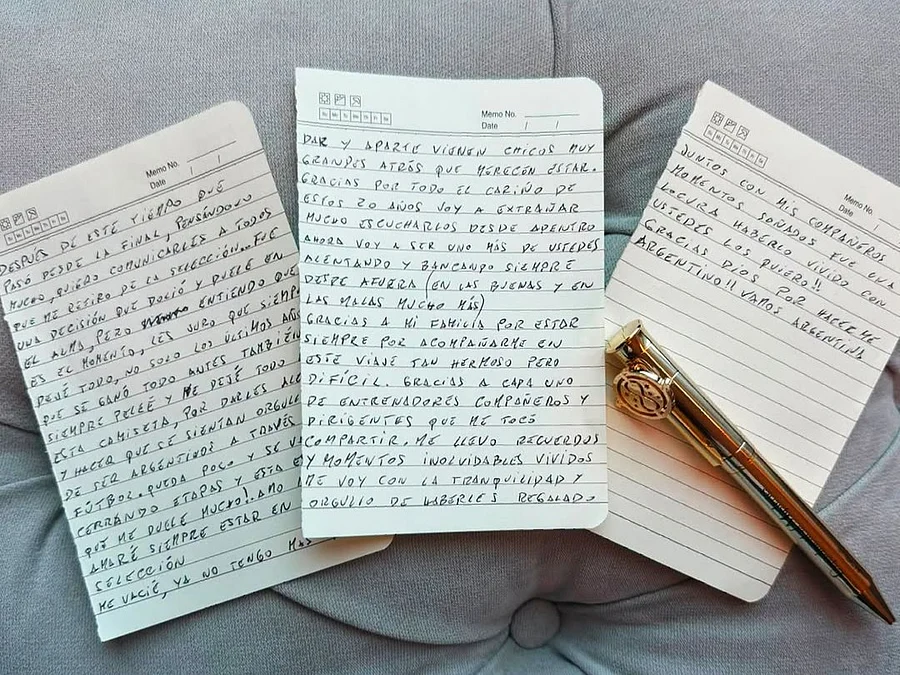 Memo No.
Date / /
DESPUÉS DE ESTE TIEMPO QUE
PASÓ DESDE LA FINAL, PENSÁNDOLO
MUCHO, QUIERO COMUNICARLES A TODOS
QUE ME RETIRO DE LA SELECCIÓN.. FUE
UNA DECISIÓN QUE DOLIÓ Y DUELE EN
EL ALMA, PERO ENTIENDO QUE
ES EL MOMENTO, LES JURO QUE SIEMP
DEJÉ TODO, NO SOLO LOS ÚLTIMOS AÑOS
QUE SE GANÓ TODO ANTES TAMBIÉN
SIEMPRE PELEÉ Y ME DEJÉ TODO
ESTA CAMISETA, POR DARLES AL
Y HACER QUE SE SIENTAN ORGULL
DE SER ARGENTINOS A TRAVÉS
FÚTBOL. QUEDA POCO Y SE VA
CERRANDO ETAPAS Y ESTA E
QUÉ ME DUELE MUCHO!. AMO
AMARÉ SIEMPRE ESTAR EN
SELECCIÓN
ME VACIÉ, YA NO TENGO MÁS
Su Mo Tu We Th Fr Sa
Memo No.
Date / /
DAR Y APARTE VIENEN CHICOS MUY
GRANDES ATRÁS QUE MERECEN ESTAR.
GRACIAS POR TODO EL CARIÑO DE
ESTOS 20 AÑOS VOY A EXTRAÑAR
MUCHO ESCUCHARLOS DESDE ADENTRO
AHORA VOY A SER UNO MÁS DE USTEDES
ALENTANDO Y BANCANDO SIEMPRE
DESDE AFUERA (EN LAS BUENAS Y EN
LAS MALAS MUCHO MÁS)
GRACIAS A MI FAMILIA POR ESTAR
SIEMPRE POR ACOMPAÑARME EN
ESTE VIAJE TAN HERMOSO PERO
DIFÍCIL. GRACIAS A CADA UNO
DE ENTRENADORES COMPAÑEROS Y
DIRIGENTES QUE ME TOCÓ
COMPARTIR. ME LLEVO RECUERDOS
Y MOMENTOS INOLVIDABLES VIVIDOS
ME VOY CON LA TRANQUILIDAD Y
ORGULLO DE HABERLES REGALADO
Memo No.
Date / /
JUNTOS CON MIS COMPAÑEROS
MOMENTOS SOÑADOS FUE UNA
LOCURA HABERLO VIVIDO CON
USTEDES LOS QUIERO!!
GRACIAS DIOS POR HACERME
ARGENTINO!! VAMOS ARGENTINA